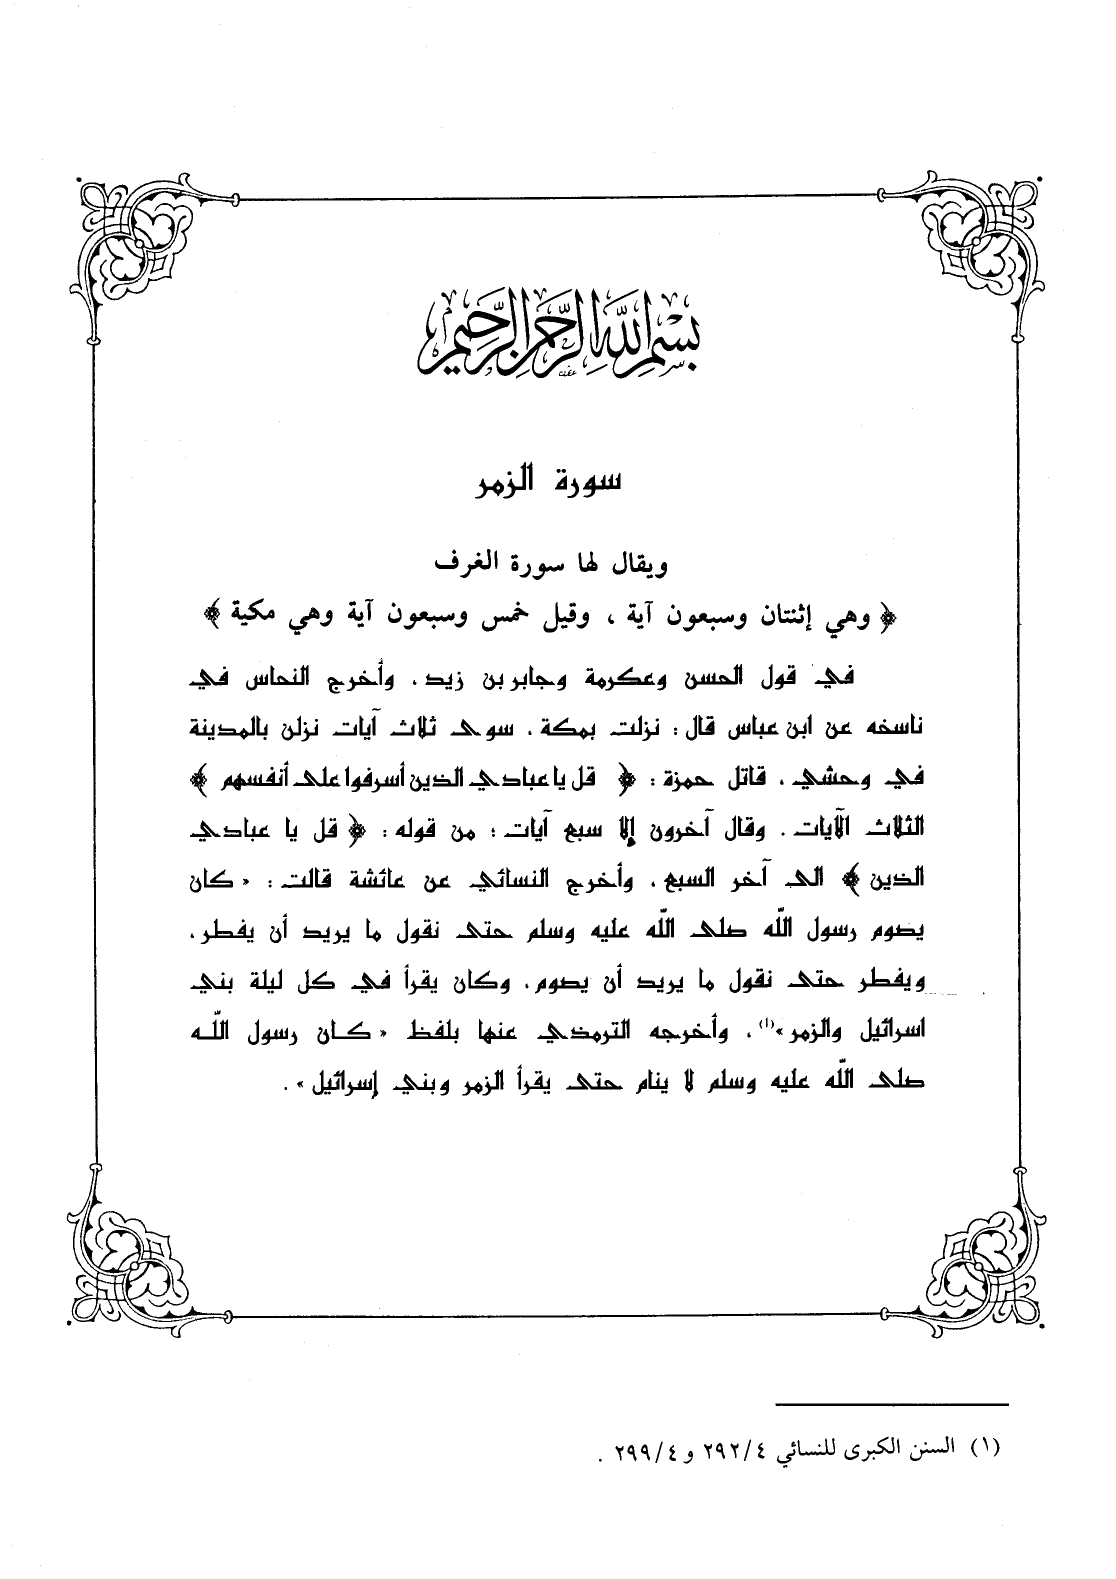 بسم الله الرحمن الرحيم
سورة الزمر
ويقال لها سورة الغرف
﴿ وهي إثنتان وسبعون آية ، وقيل خمس وسبعون آية وهي مكية ﴾
في قول الحسن وعكرمة وجابر بن زيد ، وأخرج النحاس في
ناسخه عن ابن عباس قال : نزلت بمكة ، سوى ثلاث آيات نزلن بالمدينة
في وحشي ، قاتل حمزة : ﴿ قل يا عبادي الذين أسرفوا على أنفسهم ﴾
الثلاث الآيات . وقال آخرون إلا سبع آيات ؛ من قوله : ﴿ قل يا عبادي
الذين ﴾ الى آخر السبع ، وأخرج النسائي عن عائشة قالت : « كان
يصوم رسول الله صلى الله عليه وسلم حتى نقول ما يريد أن يفطر ،
ويفطر حتى نقول ما يريد أن يصوم ، وكان يقرأ في كل ليلة بني
اسرائيل والزمر »(١) ، وأخرجه الترمذي عنها بلفظ « كان رسول الله
صلى الله عليه وسلم لا ينام حتى يقرأ الزمر وبني إسرائيل » .
(١) السنن الكبرى للنسائي ٢٩٢/٤ و ٢٩٩/٤ .